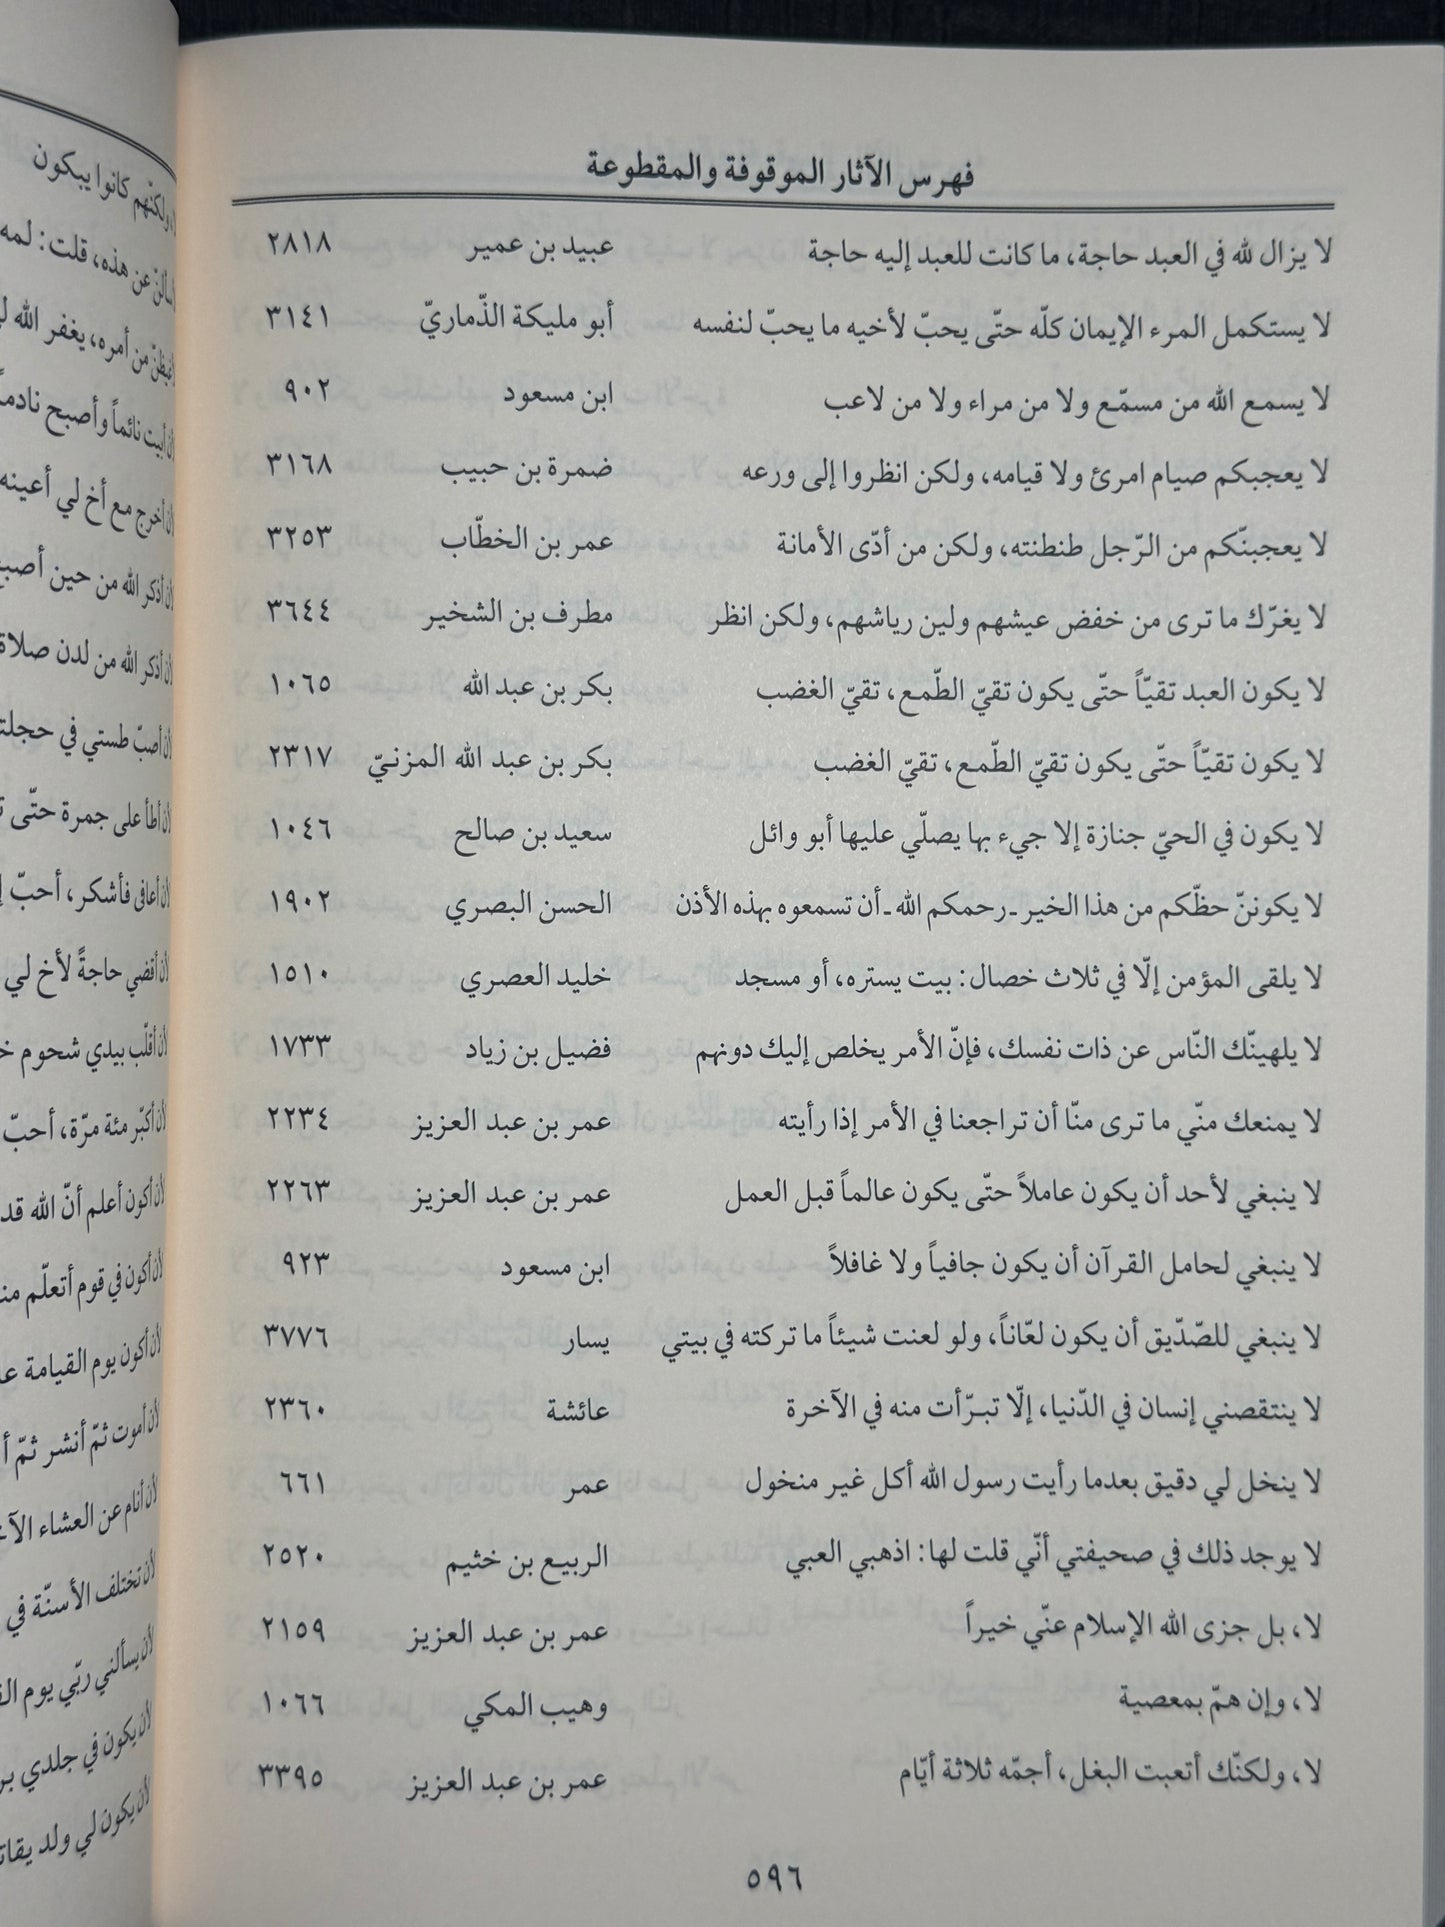 فهرس الآثار الموقوفة والمقطوعة
لا يزال لله في العبد حاجة، ما كانت للعبد إليه حاجة عبيد بن عمير ٢٨١٨
لا يستكمل المرء الإيمان كلّه حتّى يحبّ لأخيه ما يحبّ لنفسه أبو مليكة الذّماريّ ٣١٤١
لا يسمع الله من مسمّع ولا من مراء ولا من لاعب ابن مسعود ٩٠٢
لا يعجبكم صيام امرئ ولا قيامه، ولكن انظروا إلى ورعه ضمرة بن حبيب ٣١٦٨
لا يعجبنّكم من الرّجل طنطنته، ولكن من أدّى الأمانة عمر بن الخطّاب ٣٢٥٣
لا يغرّك ما ترى من خفض عيشهم ولين رياشهم، ولكن انظر مطرف بن الشخير ٣٦٤٤
لا يكون العبد تقيّاً حتّى يكون تقيّ الطّمع، تقيّ الغضب بكر بن عبد الله ١٠٦٥
لا يكون تقيّاً حتّى يكون تقيّ الطّمع، تقيّ الغضب بكر بن عبد الله المزنيّ ٢٣١٧
لا يكون في الحيّ جنازة إلا جيء بها يصلّي عليها أبو وائل سعيد بن صالح ١٠٤٦
لا يكوننّ حظّكم من هذا الخير ـ رحمكم الله ـ أن تسمعوه بهذه الأذن الحسن البصري ١٩٠٢
لا يلقى المؤمن إلّا في ثلاث خصال: بيت يستره، أو مسجد خليد العصري ١٥١٠
لا يلهينّك النّاس عن ذات نفسك، فإنّ الأمر يخلص إليك دونهم فضيل بن زياد ١٧٣٣
لا يمنعك منّي ما ترى منّا أن تراجعنا في الأمر إذا رأيته عمر بن عبد العزيز ٢٢٣٤
لا ينبغي لأحد أن يكون عاملاً حتّى يكون عالماً قبل العمل عمر بن عبد العزيز ٢٢٦٣
لا ينبغي لحامل القرآن أن يكون جافياً ولا غافلاً ابن مسعود ٩٢٣
لا ينبغي للصّدّيق أن يكون لعّاناً، ولو لعنت شيئاً ما تركته في بيتي يسار ٣٧٧٦
لا ينتقصني إنسان في الدّنيا، إلّا تبرّأت منه في الآخرة عائشة ٢٣٦٠
لا ينخل لي دقيق بعدما رأيت رسول الله أكل غير منخول عمر ٦٦١
لا يوجد ذلك في صحيفتي أنّي قلت لها: اذهبي العبي الربيع بن خثيم ٢٥٢٠
لا، بل جزى الله الإسلام عنّي خيراً عمر بن عبد العزيز ٢١٥٩
لا، وإن همّ بمعصية وهيب المكي ١٠٦٦
لا، ولكنّك أتعبت البغل، أجمّه ثلاثة أيّام عمر بن عبد العزيز ٣٣٩٥
٥٩٦
ولكنّهم كانوا يبكون
عن هذه، قلت: لمه
من أمره، يغفر الله
أن أبيت نائماً وأصبح
أخرج مع أخ لي أعينه
أذكر الله من حين
أذكر الله من لدن صلاة
أصبّ طستي في
أطأ على جمرة حتّى
أعافى فأشكر، أحبّ
أقضي حاجةً لأخ لي
أقلّب بيدي شحوم
أكبّر مئة مرّة، أحبّ
أكون أعلم أنّ الله قد
أكون في قوم أتعلّم
أكون يوم القيامة
أموت ثمّ أنشر ثمّ
أنام عن العشاء
تختلف الأسنّة في
يسألني ربّي يوم
يكون في جلدي
يكون لي ولد